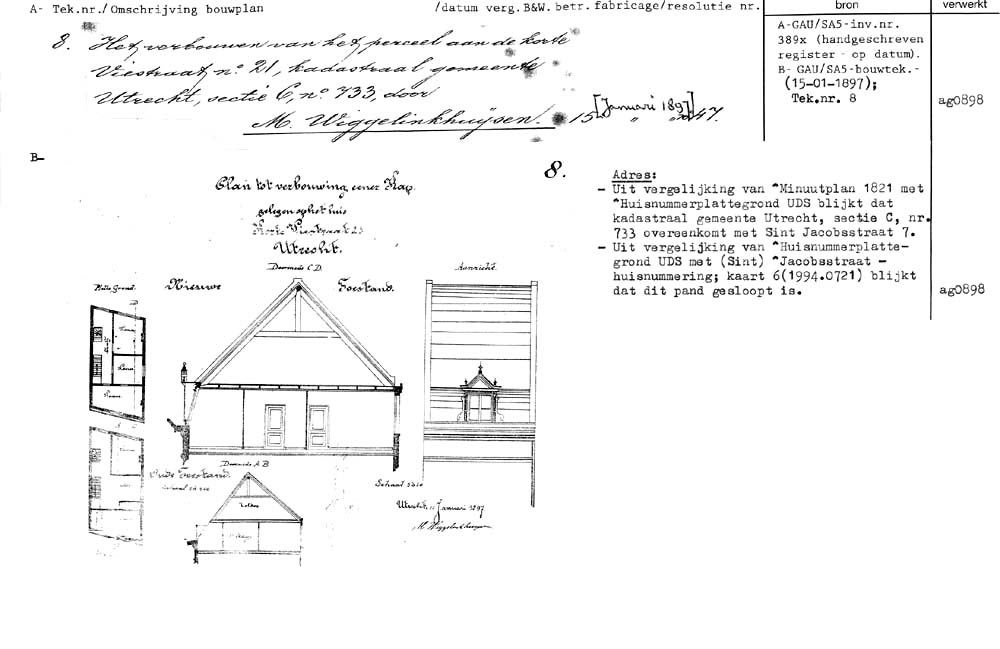 A- Tek.nr./Omschrijving bouwplan /datum verg.B&W.betr.fabricage/resolutie nr. bron verwerkt
8. Het verbouwen van het perceel aan de korte
Viestraat, no. 21, kadastraal gemeente
Utrecht, sectie C, no. 733, door
M. Wiggelinkhuijsen. 15 [Januari 1897] 47.
A-GAU/SA5-inv.nr.
389x (handgeschreven
register - op datum).
B- GAU/SA5-bouwtek.-
(15-01-1897);
Tek.nr. 8
ag0898
B-
Plan tot verbouwing eener Kap.
gelegen op het huis
Korte Viestraat 21
Utrecht.
Doorsnede C.D.
Aanzicht
Nieuwe Toestand.
Platte Grond.
Doorsnede A B
Oude Toestand.
Schaal
Zolder
Utrecht Januari 1897
M. Wiggelinkhuijsen
8.
Adres:
- Uit vergelijking van *Minuutplan 1821 met
*Huisnummerplattegrond UDS blijkt dat
kadastraal gemeente Utrecht, sectie C, nr.
733 overeenkomt met Sint Jacobsstraat 7.
- Uit vergelijking van *Huisnummerplatte-
grond UDS met (Sint) *Jacobsstraat -
huisnummering; kaart 6(1994.0721) blijkt
dat dit pand gesloopt is.
ag0898